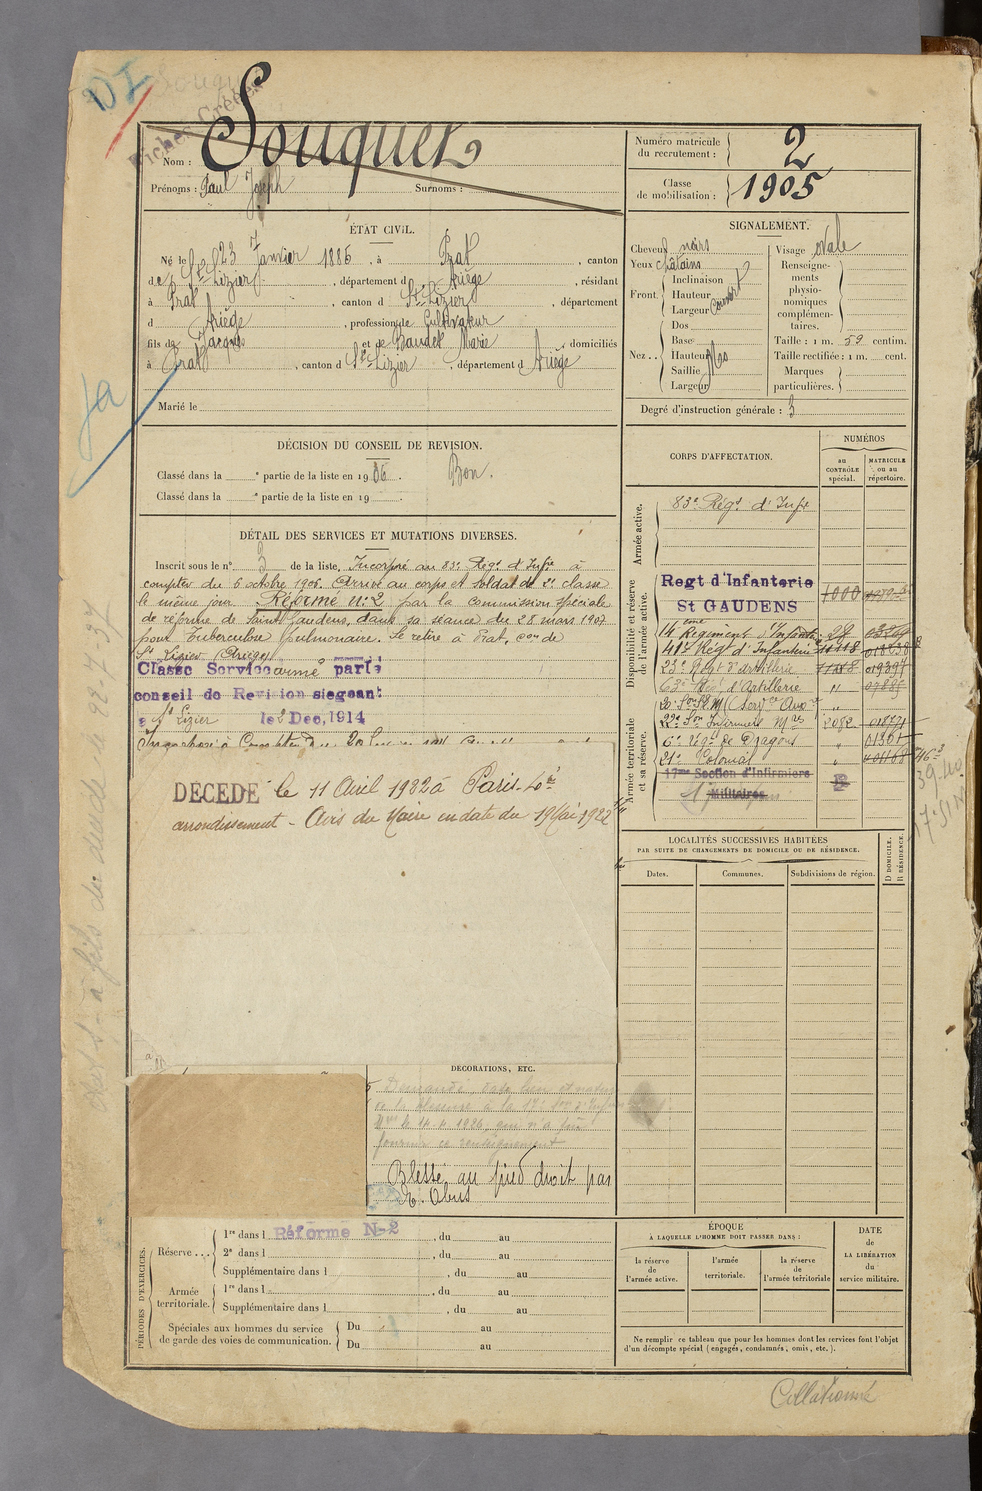 DI
Fiches Créées
Nom : Souquet
Prénoms : Paul Joseph Surnoms :
Numéro matricule du recrutement : 2
Classe de mobilisation : 1905
ÉTAT CIVIL.
Né le 23 Janvier 1885, à Prat, canton
de St Lizier, département d Ariège, résidant
à Prat, canton d St Lizier, département
d Ariège, profession de Cultivateur
fils de Jacques et de Baudet Marie, domiciliés
à Prat, canton d St Lizier, département d Ariège
Marié le
SIGNALEMENT.
Cheveux noirs
Yeux châtains
Front. Inclinaison
Hauteur
Largeur couvert
Nez.. Dos
Base
Hauteur Mo
Saillie
Largeur
Visage ovale
Renseigne-
ments
physio-
nomiques
complémen-
taires.
Taille : 1 m. 59 centim.
Taille rectifiée : 1 m. cent.
Marques
particulières.
Degré d'instruction générale : 3
DÉCISION DU CONSEIL DE REVISION.
Classé dans la e partie de la liste en 1906. Bon.
Classé dans la e partie de la liste en 19
DÉTAIL DES SERVICES ET MUTATIONS DIVERSES.
Inscrit sous le n° 3 de la liste. Incorporé au 83e Régt d'Infie à
compter du 6 octobre 1906. Arrivé au corps et soldat de 2e classe
le même jour. Réformé n° 2 par la commission spéciale
de réforme de Saint-Gaudens, dans sa séance du 28 mars 1907
pour tuberculose pulmonaire. Se retire à Prat, con de
St Lizier (Ariège)
Classé Service armé par le
conseil de Revision siegeant
à St Lizier le 2 Dec, 1914
DÉCÉDÉ le 11 Avril 1932 à Paris 4ème
arrondissement - Avis du Maire en date du 19 Mai 1932
CORPS D'AFFECTATION.
NUMÉROS
au CONTRÔLE spécial.
MATRICULE ou au répertoire.
Armée active.
83e Régt d'Infie
Disponibilité et réserve de l'armée active.
Regt d'Infanterie
St GAUDENS 1000
14eme Régiment d'Infanterie 29
417 Régt d'Infanterie
23e Régt d'artillerie
63e Régt d'Artillerie "
Armée territoriale et sa réserve.
22e Son Infirmiers Mres 2082
6e Rég. de Dragons " 01361
21e Colonial "
17me Section d'Infirmiers
Militaires
LOCALITÉS SUCCESSIVES HABITÉES
PAR SUITE DE CHANGEMENTS DE DOMICILE OU DE RÉSIDENCE.
D DOMICILE.
R RÉSIDENCE.
Dates. Communes. Subdivisions de région.
DÉCORATIONS, ETC.
de la blessure à la 17e Son d'Infirm
Mres le 14-4-1926, qui n'a pu
fournir ce renseignement
Blessé au pied droit par
E. Obus
PÉRIODES D'EXERCICES.
Réserve... 1re dans l Réformé N-2, du au
2e dans l, du au
Supplémentaire dans l, du au
Armée territoriale. 1re dans l, du au
Supplémentaire dans l, du au
Spéciales aux hommes du service
de garde des voies de communication.
Du au
Du au
ÉPOQUE
A LAQUELLE L'HOMME DOIT PASSER DANS :
la réserve de l'armée active.
l'armée territoriale.
la réserve de l'armée territoriale
DATE de LA LIBÉRATION du service militaire.
Ne remplir ce tableau que pour les hommes dont les services font l'objet
d'un décompte spécial (engagés, condamnés, omis, etc.).
Collationné